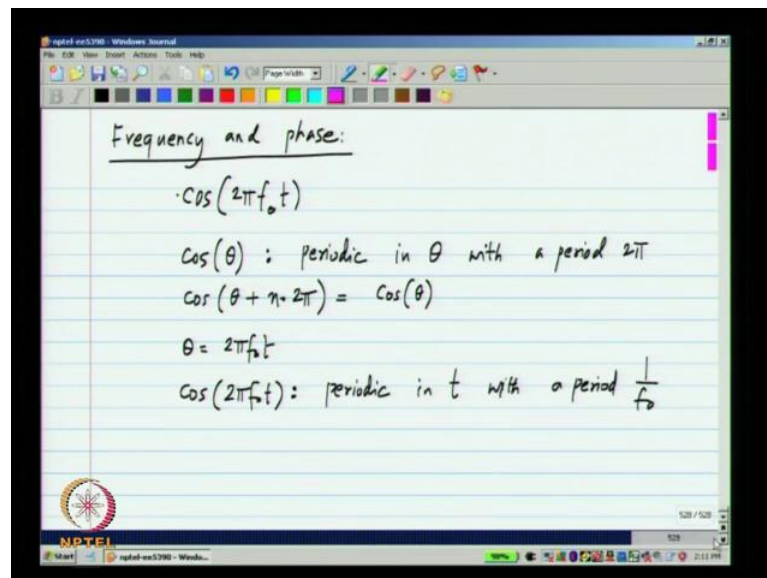 nptel-ee5390 - Windows Journal
File Edit View Insert Actions Tools Help
Page Width
B I
Frequency and phase:
cos(2πf₀t)
cos(θ) : periodic in θ with a period 2π
cos(θ + n·2π) = cos(θ)
θ = 2πf₀t
cos(2πf₀t) : periodic in t with a period 1/f₀
528 / 528
528
NPTEL
Start nptel-ee5390 - Windo... 98% 2:11 PM